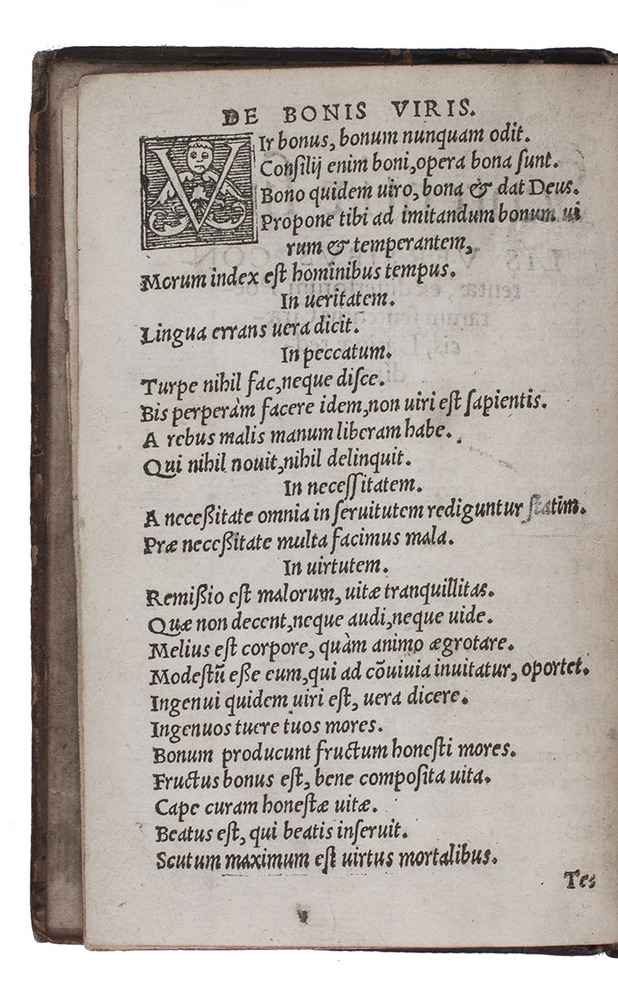 DE BONIS VIRIS.
VIr bonus, bonum nunquam odit.
Conſilij enim boni, opera bona ſunt.
Bono quidem uiro, bona & dat Deus.
Propone tibi ad imitandum bonum ui
rum & temperantem,
Morum index eſt hominibus tempus.
In ueritatem.
Lingua errans uera dicit.
In peccatum.
Turpe nihil fac, neque diſce.
Bis perperàm facere idem, non uiri eſt ſapientis.
A rebus malis manum liberam habe.
Qui nihil nouit, nihil delinquit.
In neceſſitatem.
A neceßitate omnia in ſeruitutem rediguntur ſtatim.
Præ neceßitate multa facimus mala.
In uirtutem.
Remißio eſt malorum, uitæ tranquillitas.
Quæ non decent, neque audi, neque uide.
Melius eſt corpore, quàm animo ægrotare.
Modeſtū eße eum, qui ad cōuiuia inuitatur, oportet.
Ingenui quidem uiri eſt, uera dicere.
Ingenuos tuere tuos mores.
Bonum producunt fructum honeſti mores.
Fructus bonus eſt, bene compoſita uita.
Cape curam honeſtæ uitæ.
Beatus eſt, qui beatis inſeruit.
Scutum maximum eſt uirtus mortalibus.
Tes